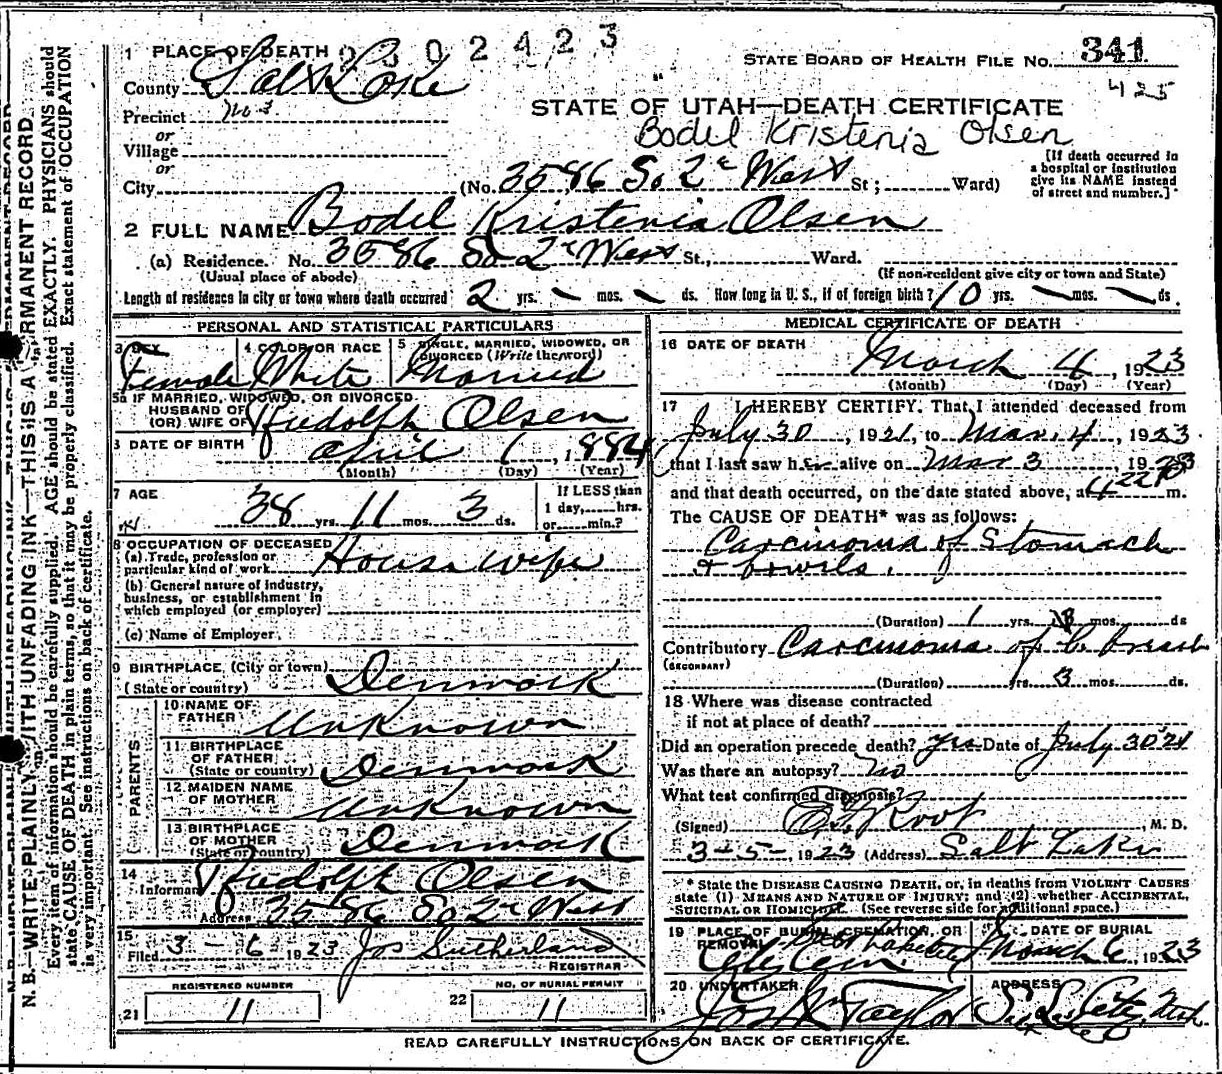 2302423
1 PLACE OF DEATH
STATE BOARD OF HEALTH FILE No. 341
425
County Salt Lake
Precinct No 3.
STATE OF UTAH—DEATH CERTIFICATE
Bodel Kristenia Olsen
or
Village
or
City (No. 3586 So 2d West St; Ward)
[If death occurred in
a hospital or institution
give its NAME instead
of street and number.]
2 FULL NAME Bodel Kristenia Olsen
(a) Residence. No. 3586 So 2d West St., Ward.
(Usual place of abode) (If non-resident give city or town and State)
Length of residence in city or town where death occurred 2 yrs. — mos. — ds. How long in U. S., if of foreign birth? 10 yrs. — mos. — ds.
PERSONAL AND STATISTICAL PARTICULARS
3 SEX 4 COLOR OR RACE 5 SINGLE, MARRIED, WIDOWED, OR
DIVORCED (Write the word)
Female White Married
5a IF MARRIED, WIDOWED, OR DIVORCED
HUSBAND OF
(OR) WIFE OF Rudolph Olsen
6 DATE OF BIRTH April 1, 1884
(Month) (Day) (Year)
7 AGE 38 yrs. 11 mos. 3 ds.
If LESS than
1 day, hrs.
or min.?
8 OCCUPATION OF DECEASED
(a) Trade, profession or
particular kind of work House wife
(b) General nature of industry,
business, or establishment in
which employed (or employer)
(c) Name of Employer
9 BIRTHPLACE (City or town)
(State or country) Denmark
PARENTS
10 NAME OF
FATHER Unknown
11 BIRTHPLACE
OF FATHER
(State or country) Denmark
12 MAIDEN NAME
OF MOTHER Unknown
13 BIRTHPLACE
OF MOTHER
(State or country) Denmark
14
Informant Rudolph Olsen
Address 3586 So 2d West
15
Filed 3 - 6 1923 Jos Sutherland
REGISTRAR
REGISTERED NUMBER
21 11
NO. OF BURIAL PERMIT
22 11
MEDICAL CERTIFICATE OF DEATH
16 DATE OF DEATH
March 4, 1923
(Month) (Day) (Year)
17 I HEREBY CERTIFY, That I attended deceased from
July 30, 1921, to Mar. 4, 1923.
that I last saw her alive on Mar 3 1923
and that death occurred, on the date stated above, at 4 22 P m.
The CAUSE OF DEATH* was as follows:
Carcinoma of Stomach
& bowels.
(Duration) 1 yrs. mos. ds
Contributory Carcinoma of L. breast
(SECONDARY)
(Duration) yrs. 3 mos. ds.
18 Where was disease contracted
if not at place of death?
Did an operation precede death? yes Date of July 30 '21
Was there an autopsy? no
What test confirmed diagnosis?
(Signed) Root, M. D.
3-5-, 1923 (Address) Salt Lake
* State the DISEASE CAUSING DEATH, or, in deaths from VIOLENT CAUSES
state (1) MEANS AND NATURE OF INJURY; and (2) whether ACCIDENTAL,
SUICIDAL OR HOMICIDAL. (See reverse side for additional space.)
19 PLACE OF BURIAL, CREMATION, OR
REMOVAL
DATE OF BURIAL
Cem. March 6, 1923
20 UNDERTAKER ADDRESS
Jos Wm Taylor S. L. City, Utah
READ CAREFULLY INSTRUCTIONS ON BACK OF CERTIFICATE.
N. B.—WRITE PLAINLY WITH UNFADING INK—THIS IS A PERMANENT RECORD
Every item of information should be carefully supplied. AGE should be stated EXACTLY. PHYSICIANS should
state CAUSE OF DEATH in plain terms, so that it may be properly classified. Exact statement of OCCUPATION
is very important. See instructions on back of certificate.